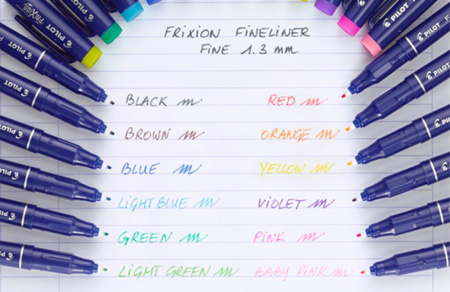 FRIXION FINELINER
FINE 1.3 mm
BLACK m RED m
BROWN m ORANGE m
BLUE m YELLOW m
LIGHT BLUE m VIOLET m
GREEN m PINK m
LIGHT GREEN m BABY PINK m
PILOT
PILOT
PILOT
PILOT
PILOT
PILOT
PILOT
PILOT
PILOT